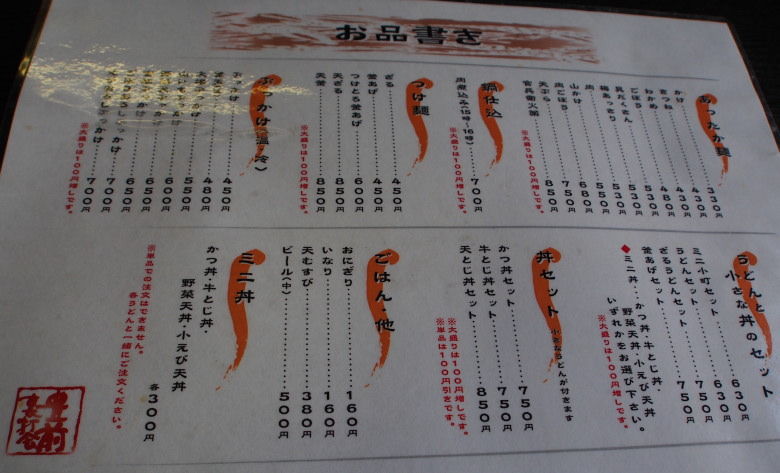 お品書き
あったか麺
かけ 330円
きつね 430円
わかめ 430円
ごぼう 480円
具だくさん 530円
梅あっさり 530円
肉 550円
山かけ 550円
肉ごぼう 680円
天ぷら 750円
官兵衛火鍋 850円
※大盛りは100円増しです。
鍋仕込
肉煮込み(15時〜16時) 700円
つけ麺
ざる 450円
釜あげ 450円
つけとろ釜あげ 600円
天ざる 850円
天釜 850円
ぶっかけ(温・冷)
ぶっかけ 450円
480円
550円
600円
650円
650円
700円
700円
※大盛りは100円増しです。
うどんと
小さな丼のセット
ミニ小町セット 630円
うどんセット 750円
ざるうどんセット 630円
釜あげセット 750円
◆ミニ丼・かつ丼・牛とじ丼・
野菜天丼・小えび天丼
いずれかをお選び下さい。
※大盛りは100円増しです。
丼セット 小さなうどんが付きます
かつ丼セット 750円
牛とじ丼セット 750円
天とじ丼セット 850円
※大盛りは100円増しです。
※単品は100円引きです。
ごはん・他
おにぎり 160円
いなり 160円
天むすび 380円
ビール(中) 500円
ミニ丼
かつ丼・牛とじ丼・
野菜天丼・小えび天丼
各300円
※単品での注文はできません。
各うどんと一緒にご注文ください。
豊前